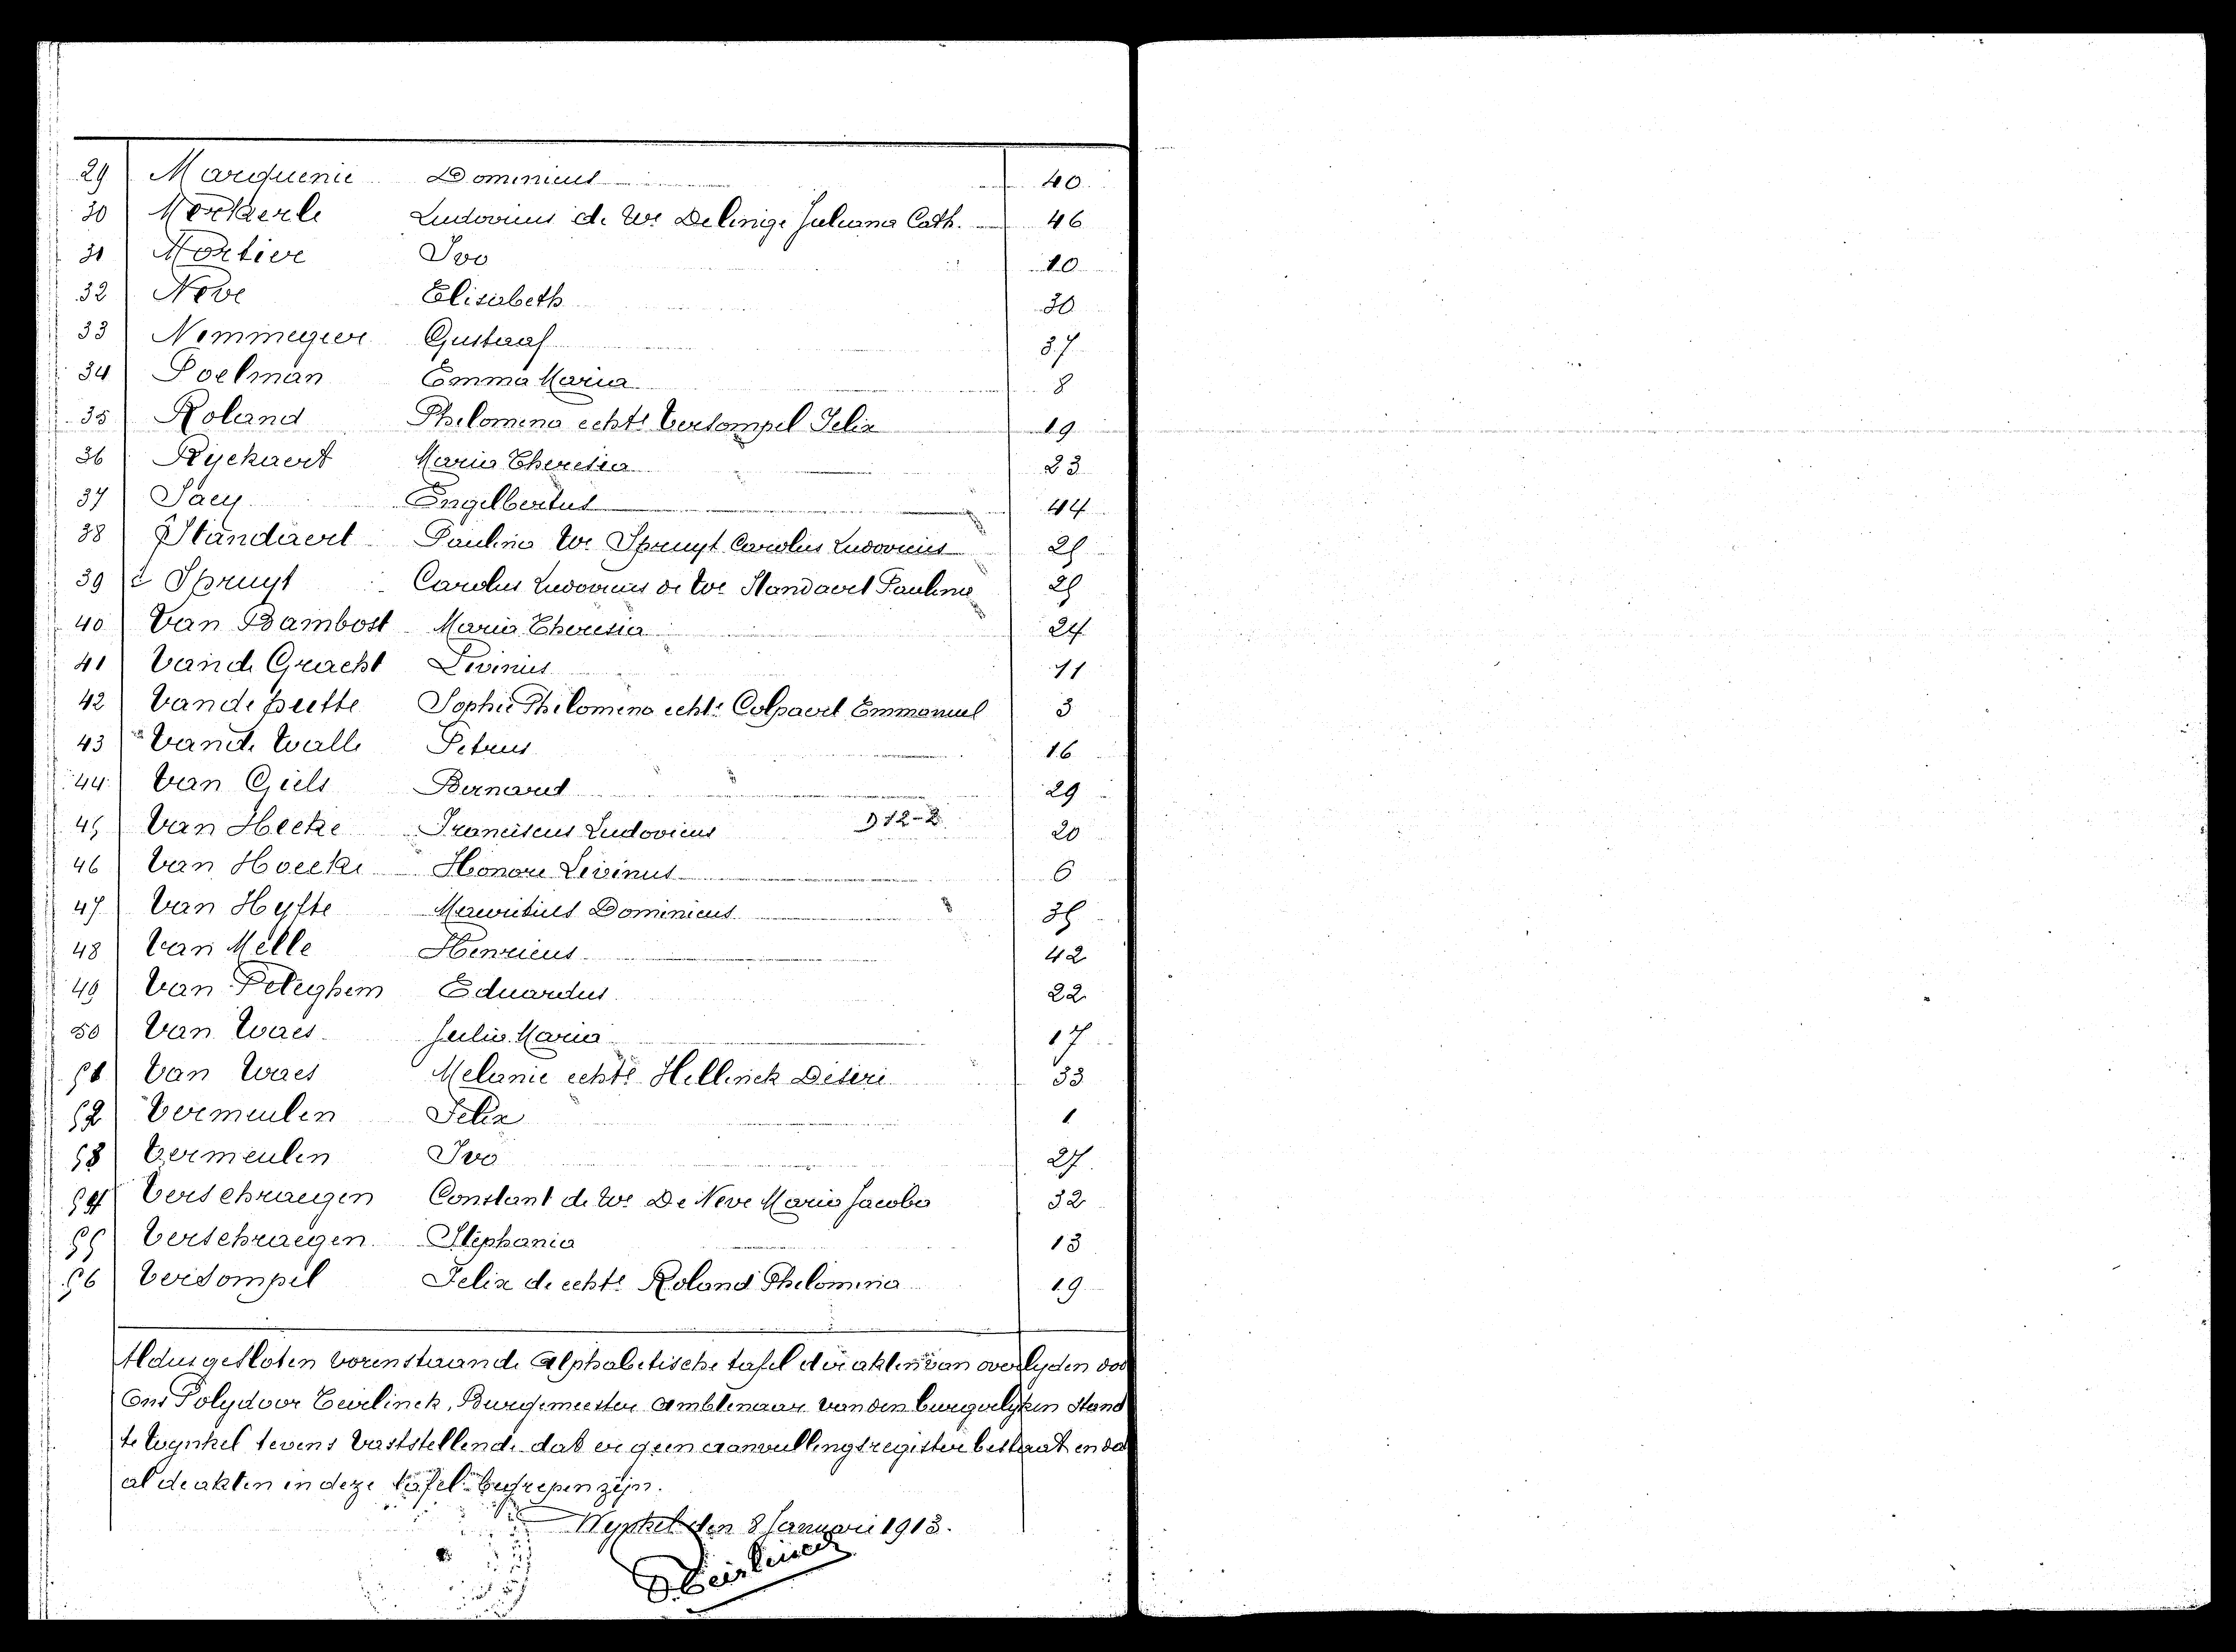 29 Marquenie Dominicus 40
30 Morkaerle Ludovicus de We Delinige Juliana Cath. 46
31 Mortier Ivo 10
32 Neve Elisabeth 30
33 Nemmegeer Gustaaf 37
34 Poelman Emma Maria 8
35 Roland Philomena echte Versompel Felix 19
36 Ryckaert Maria Theresia 23
37 Saey Engelbertus 44
38 Standaert Paulina We Spruyt Carolus Ludovicus 25
39 Spruyt Carolus Ludovicus de We Standaert Paulina 25
40 Van Bambost Maria Theresia 24
41 Van de Gracht Livinus 11
42 Van de putte Sophie Philomena echte Colpaert Emmanuel 3
43 Van de Walle Petrus 16
44 Van Giels Bernard 29
45 Van Hecke Franciscus Ludovicus D 12-2 20
46 Van Hoecke Honoré Livinus 6
47 Van Hyfte Mauritius Dominicus 35
48 Van Melle Henricus 42
49 Van Peteghem Eduardus 22
50 Van Waes Julia Maria 17
51 Van Waes Melanie echte Hellinck Désiré 33
52 Vermeulen Felix 1
53 Vermeulen Ivo 27
54 Verschraegen Constant de We De Neve Maria Jacoba 32
55 Verschraegen Stephania 13
56 Versompel Felix de echte Roland Philomena 19
Aldus gesloten vorenstaande Alphabetische tafel der akten van overlyden doo
Ons Polydoor Geirlinck, Burgemeester Ambtenaar van den burgerlyken Stand
te Wynkel tevens vaststellende dat er geen aanvullingsregister bestaat en da
al de akten in deze tafel begrepen zijn.
Wynkel den 8 Januari 1913.